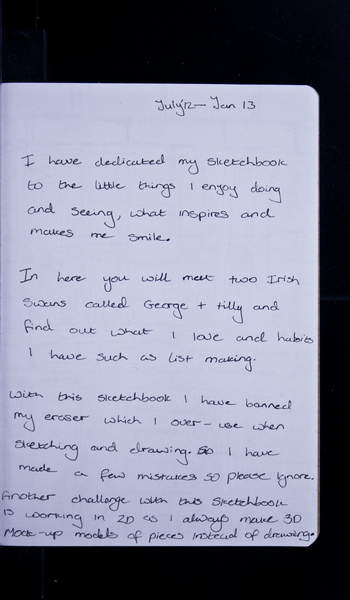 July'12 - Jan 13
I have dedicated my sketchbook
to the little things I enjoy doing
and seeing, what inspires and
makes me smile.
In here you will meet two Irish
Swans called George + tilly and
find out what I love and habits
I have such as list making.
With this sketchbook I have banned
my eraser which I over-use when
sketching and drawing. So I have
made a few mistakes so please ignore.
Another challenge with this sketchbook
is working in 2D as I always make 3D
Mock-up models of pieces instead of drawing.